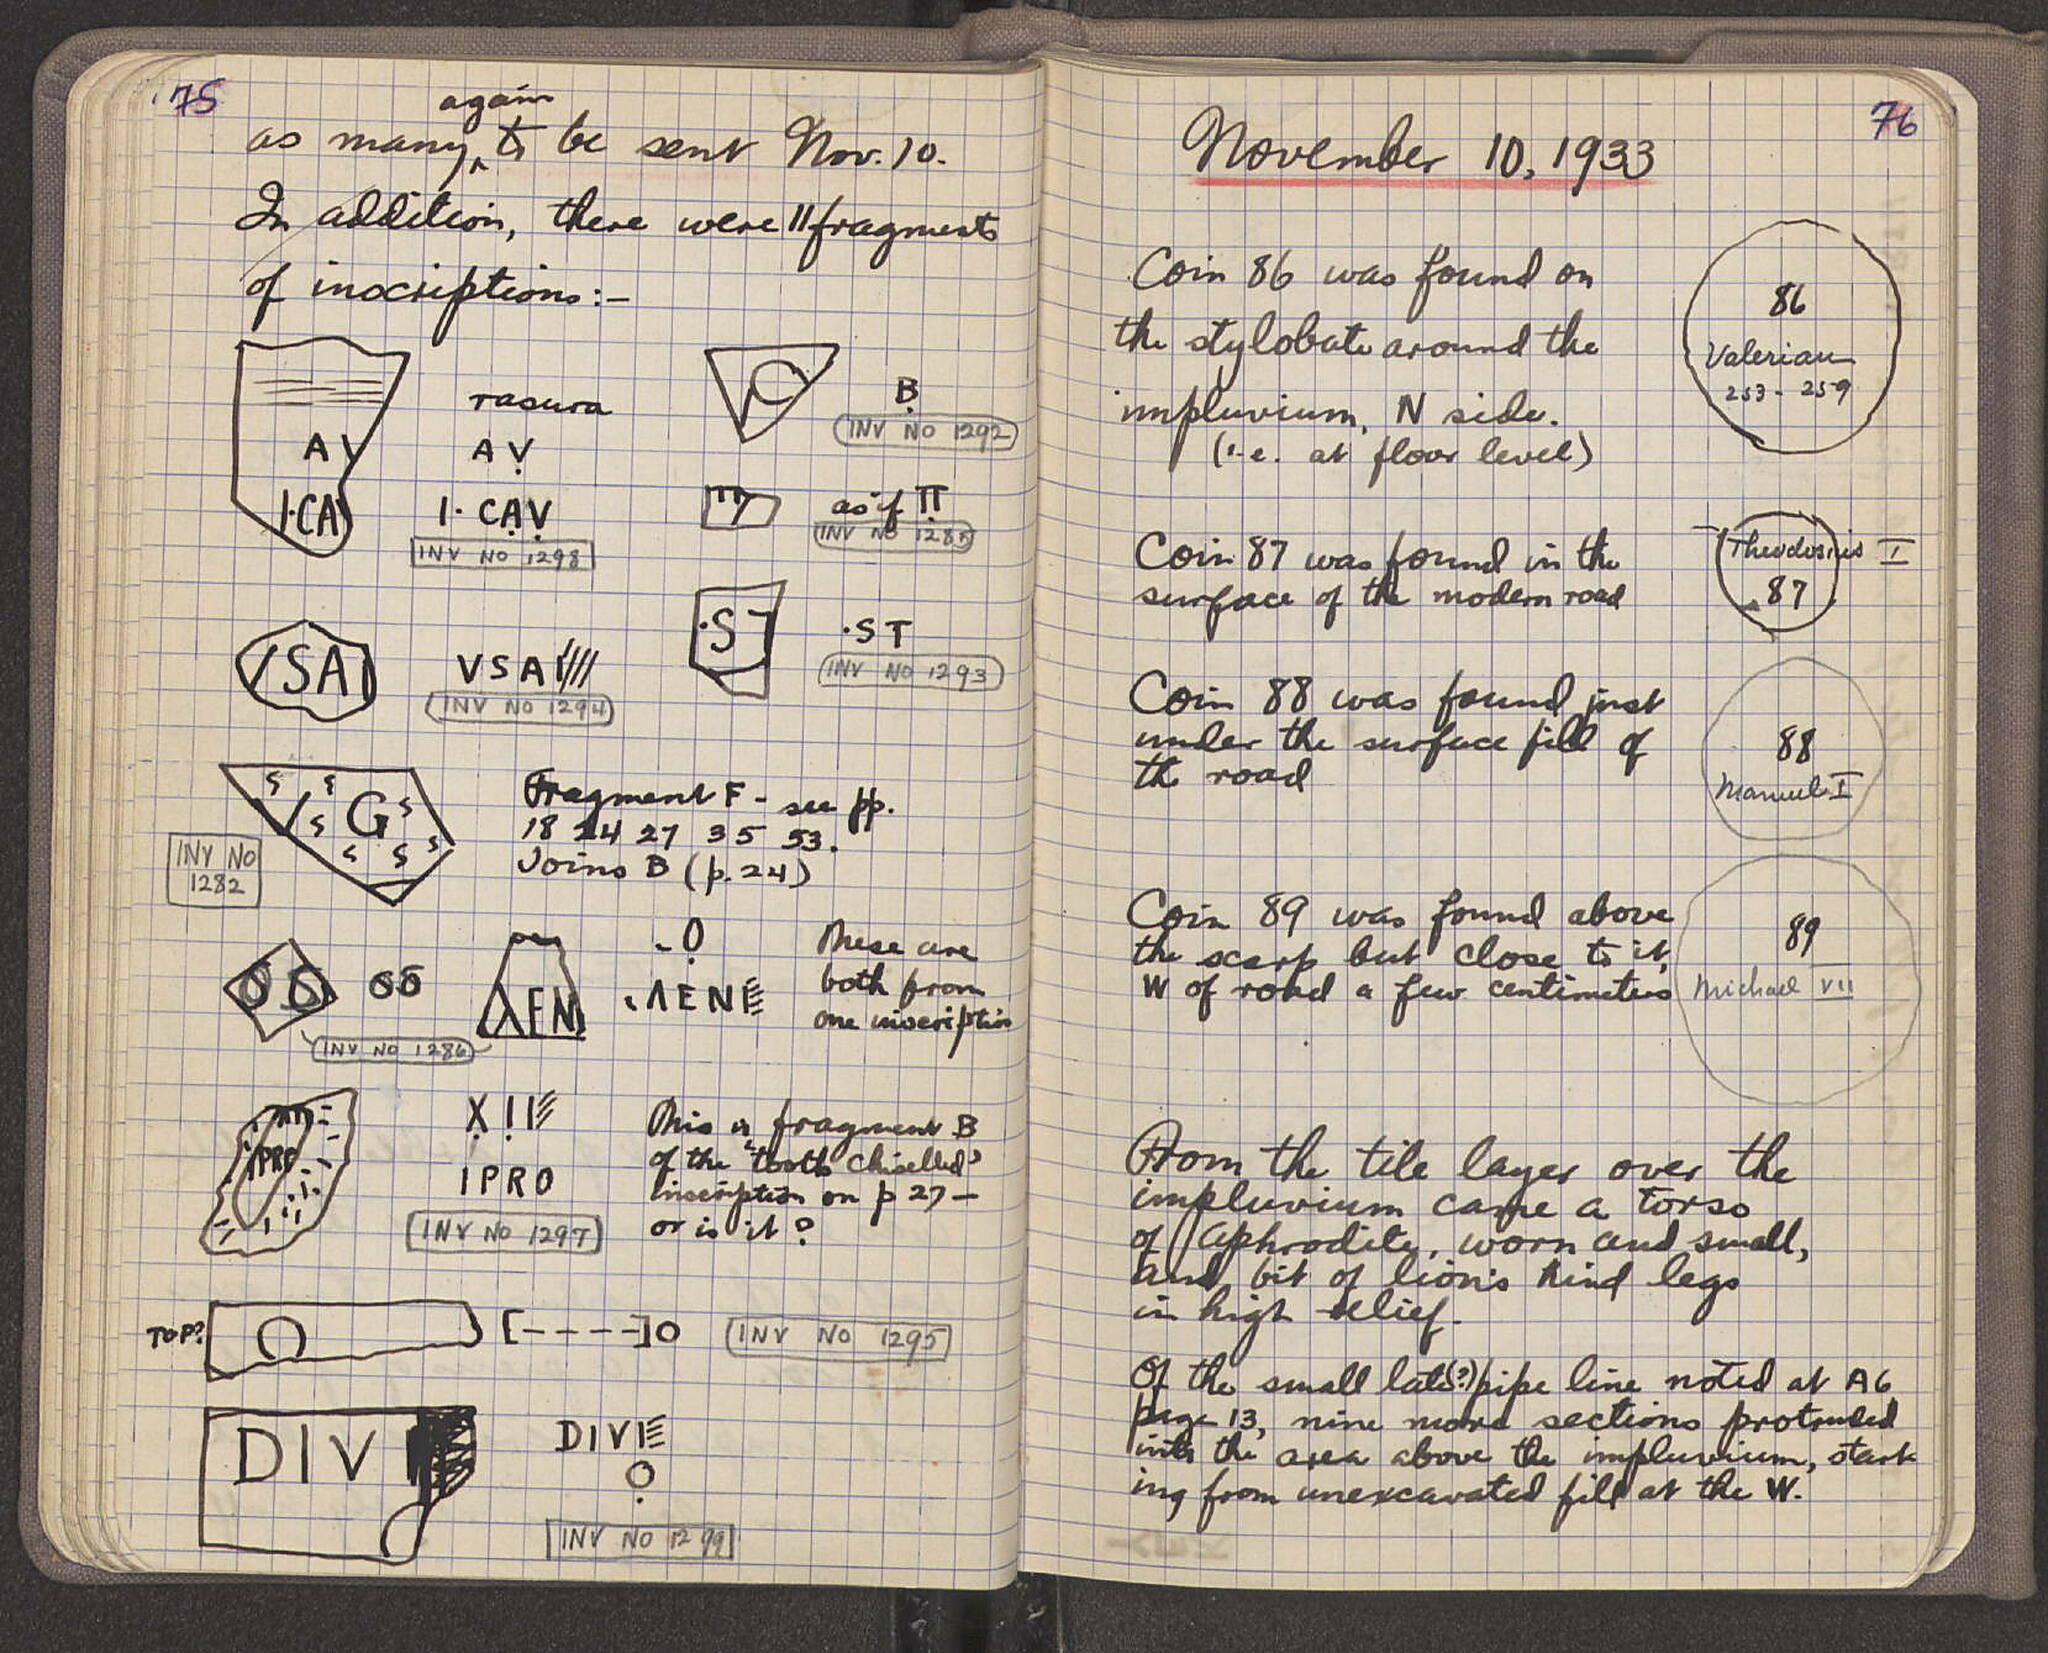 75
again
as many ‸ to be sent Nov. 10.
In addition, there were 11 fragments
of inscriptions:-
A V
I·CAV
rasura
A V
I· CAV
INV NO 1298
C
B
INV NO 1292
as if Π
INV NO 1285
VSAI
VSAI
INV NO 1294
·ST
·ST
INV NO 1293
V G
INV NO 1282
Fragment F - see pp.
18 24 27 35 53.
Joins B (p. 24)
ΛEN
- O
·ΛENE
INV NO 1286
These are
both from
one inscription
IPRO
X I I
IPRO
INV NO 1297
This is fragment B
of the "tooth chiselled"
inscription on p 27 -
or is it?
TOP?
O
[----]O
INV NO 1295
DIV
DIVI
O
INV NO 1299
76
November 10, 1933
Coin 86 was found on
the stylobate around the
impluvium, N side.
(i.e. at floor level)
86
Valerian
253 - 259
Coin 87 was found in the
surface of the modern road
Theodosius I
87
Coin 88 was found just
under the surface fill of
the road
88
Manuel I
Coin 89 was found above
the scarp but close to it,
W of road a few centimeters
89
Michael VII
From the tile layer over the
impluvium came a torso
of Aphrodite, worn and small,
and bit of lion's hind legs
in high relief.
Of the small late(?) pipe line noted at A6
page 13, nine more sections protruded
into the area above the impluvium, start
ing from unexcavated fill at the W.